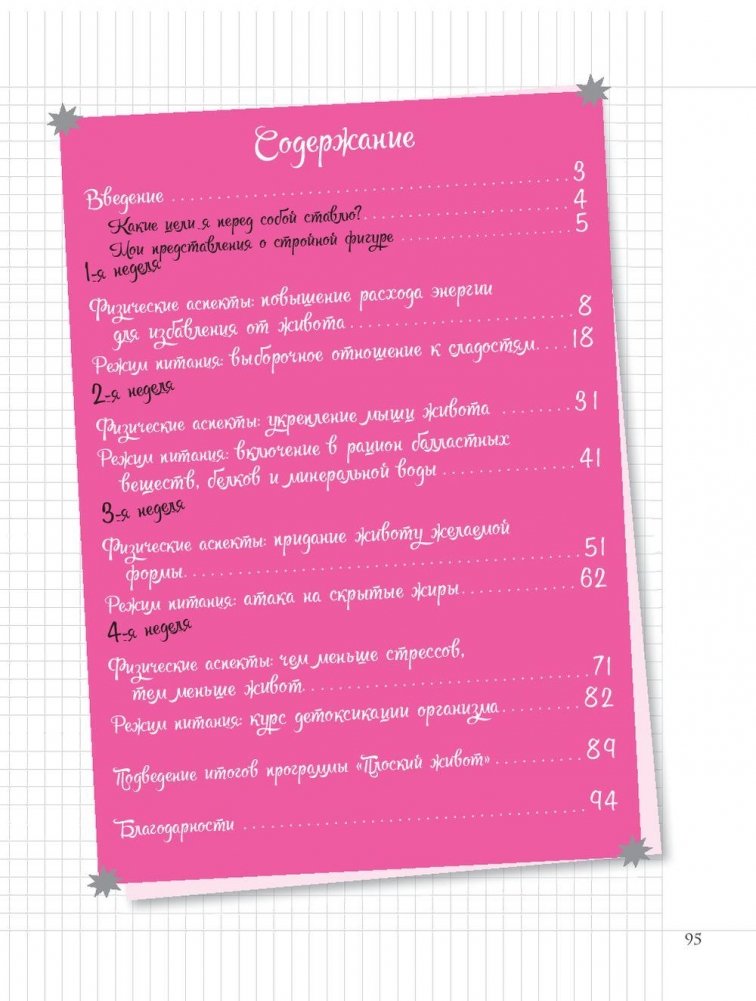 Содержание
Введение . . . . . . . . . . . . . . . . . . . . . . . . . . . . . . . . . . . . . . . . 3
Какие цели я перед собой ставлю? . . . . . . . . . . . . . . . . . . . . 4
Мои представления о стройной фигуре . . . . . . . . . . . . . . . . 5
1-я неделя
Физические аспекты: повышение расхода энергии
для избавления от живота . . . . . . . . . . . . . . . . . . . . . . . . 8
Режим питания: выборочное отношение к сладостям . . . . 18
2-я неделя
Физические аспекты: укрепление мышц живота . . . . . . . . . . 31
Режим питания: включение в рацион балластных
веществ, белков и минеральной воды . . . . . . . . . . . . . . . 41
3-я неделя
Физические аспекты: придание животу желаемой
формы . . . . . . . . . . . . . . . . . . . . . . . . . . . . . . . . . . . . . . . 51
Режим питания: атака на скрытые жиры . . . . . . . . . . . . . . 62
4-я неделя
Физические аспекты: чем меньше стрессов,
тем меньше живот . . . . . . . . . . . . . . . . . . . . . . . . . . . . . . 71
Режим питания: курс детоксикации организма . . . . . . . . . . 82
Подведение итогов программы «Плоский живот» . . . . . . . . . . 89
Благодарности . . . . . . . . . . . . . . . . . . . . . . . . . . . . . . . . . . . 94
95